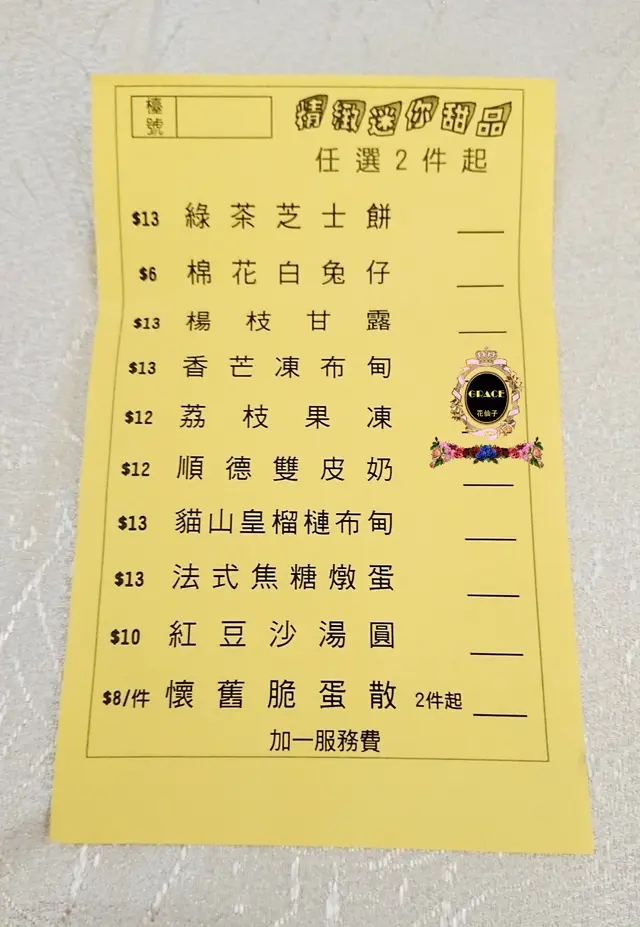 檯號
精緻迷你甜品
任選2件起
$13 綠茶芝士餅
$6 棉花白兔仔
$13 楊枝甘露
$13 香芒凍布甸
GRACE
花仙子
$12 荔枝果凍
$12 順德雙皮奶
$13 貓山皇榴槤布甸
$13 法式焦糖燉蛋
$10 紅豆沙湯圓
$8/件 懷舊脆蛋散 2件起
加一服務費